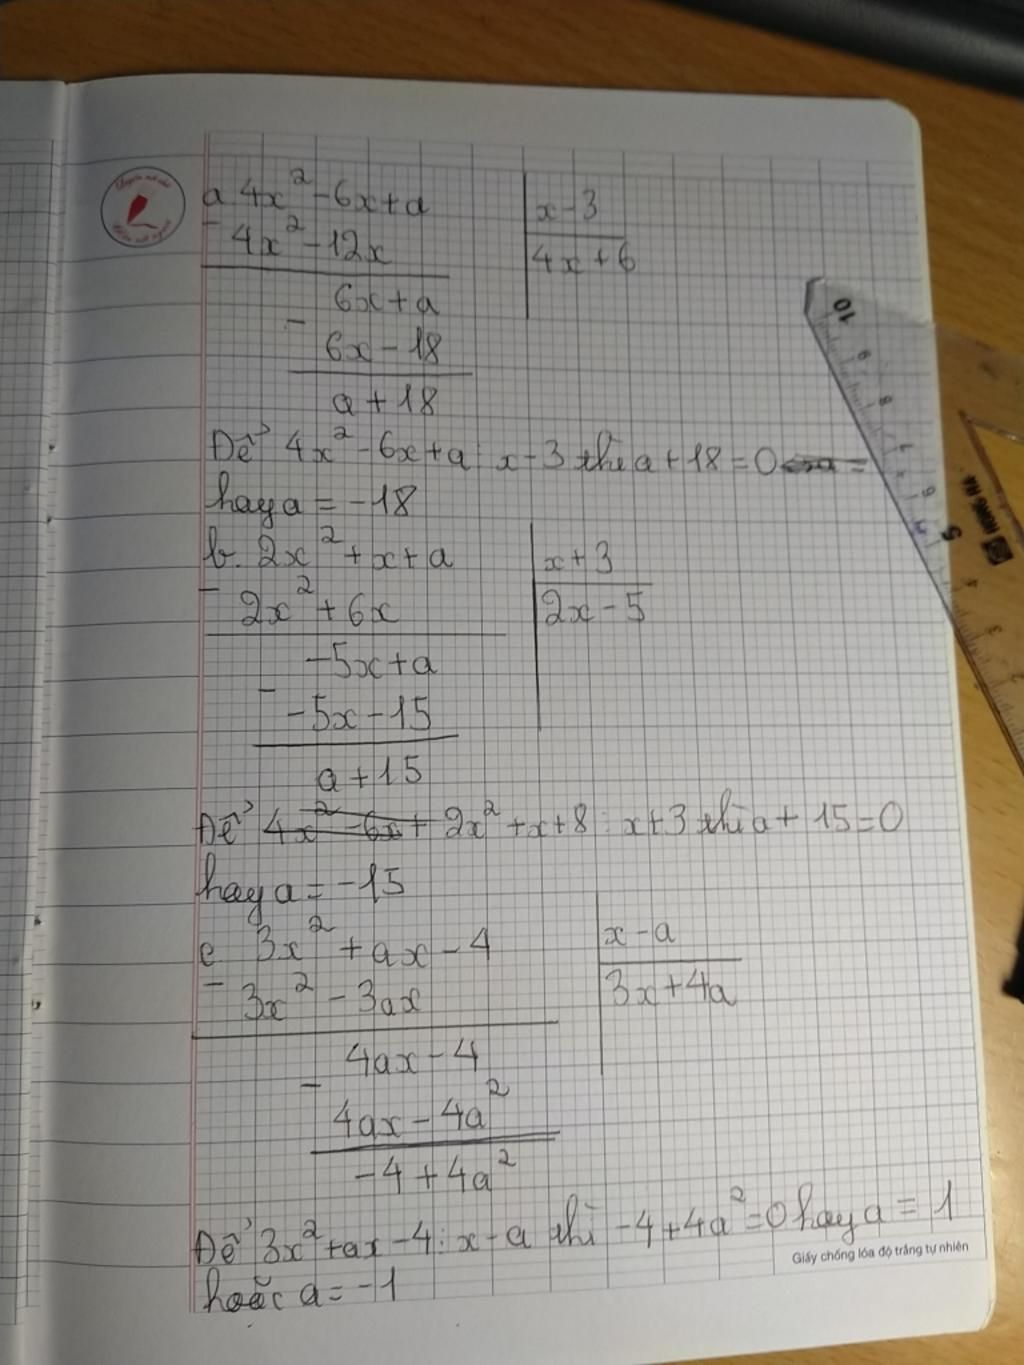 a 4x² - 6x + a | x - 3
- 4x² - 12x | 4x + 6
6x + a
- 6x - 18
a + 18
Để 4x² - 6x + a : x - 3 thì a + 18 = 0
hay a = -18
b. 2x² + x + a | x + 3
- 2x² + 6x | 2x - 5
-5x + a
- -5x - 15
a + 15
Để 4x² - 6x + 2x² + x + 8 : x + 3 thì a + 15 = 0
hay a = -15
c 3x² + ax - 4 | x - a
- 3x² - 3ax | 3x + 4a
4ax - 4
- 4ax - 4a²
-4 + 4a²
Để 3x² + ax - 4 : x - a thì -4 + 4a² = 0 hay a = 1
hoặc a = -1
Giấy chống lóa độ trắng tự nhiên
10
9
8
7
6
5
4
3
2
HONG HA